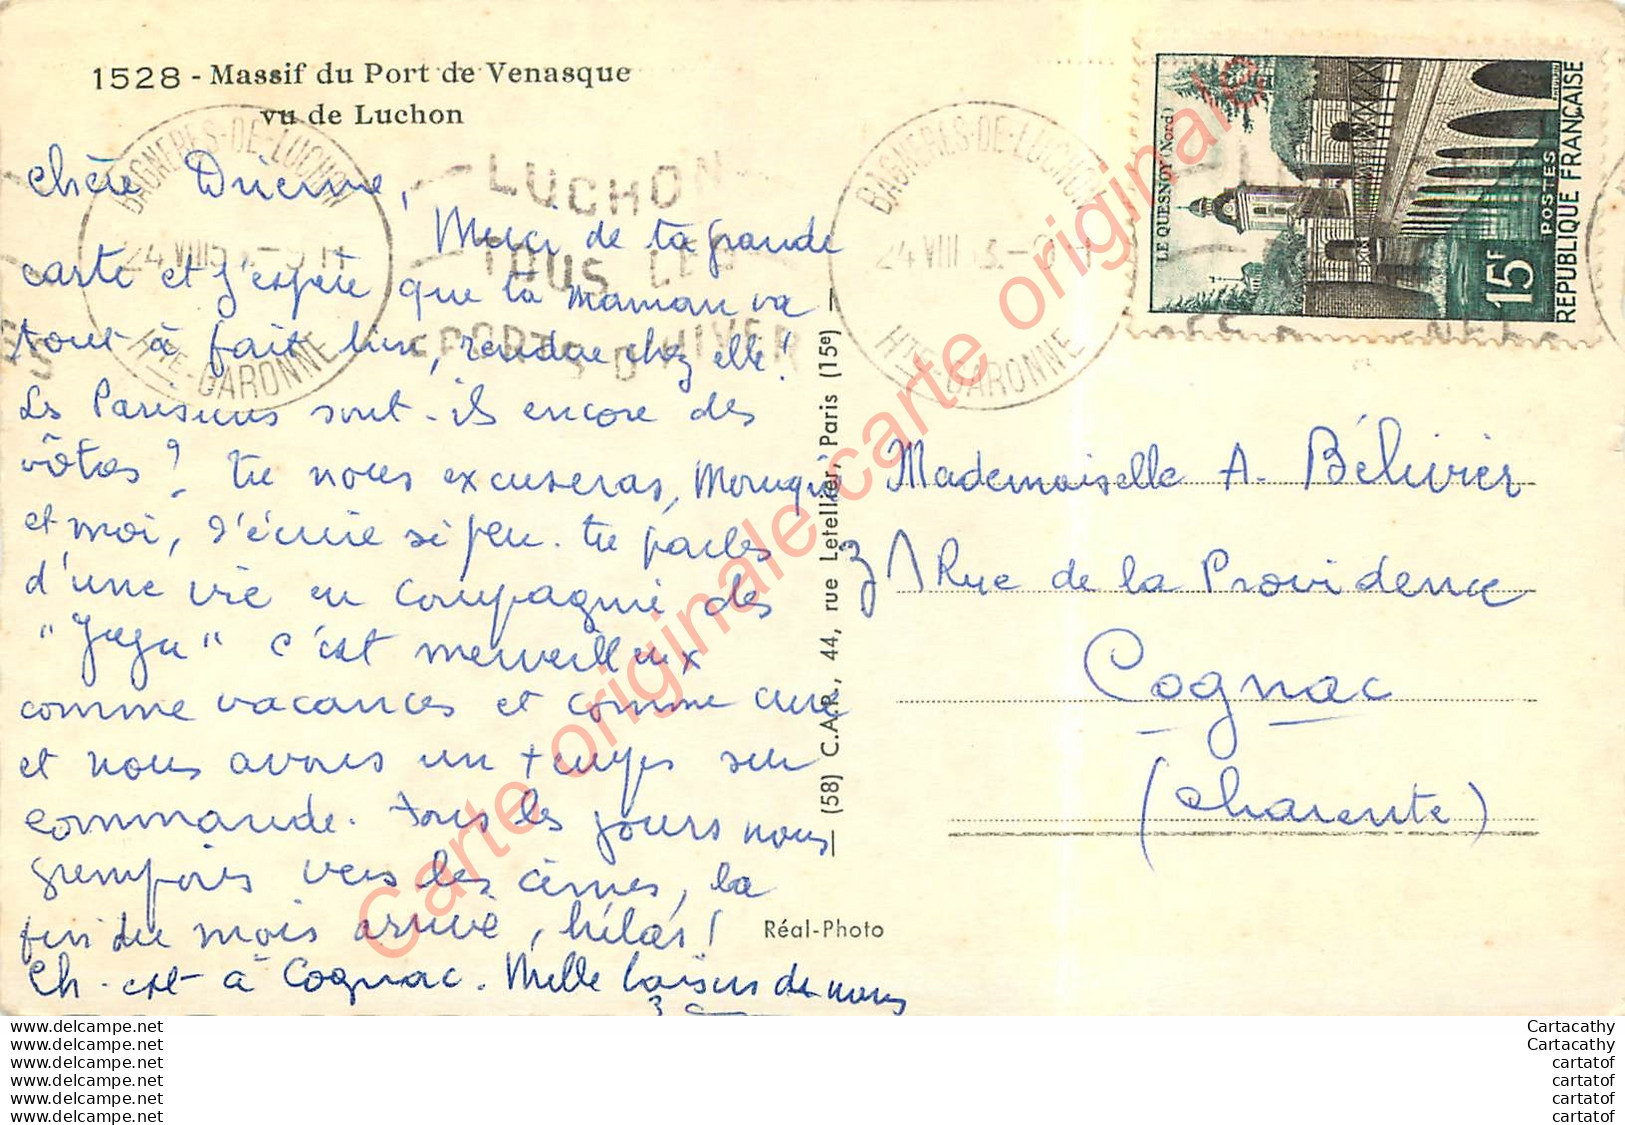 1528 - Massif du Port de Venasque
vu de Luchon
BAGNERES-DE-LUCHON
24 VIII
HTE-GARONNE
LUCHON
TOUS LES
SPORTS D'HIVER
BAGNERES-DE-LUCHON
24 VIII
HTE-GARONNE
LE QUESNOY (Nord)
15F
POSTES
REPUBLIQUE FRANÇAISE
chère
Merci de ta grande
carte et j'espère que ta maman va
tout à fait bien, rendue chez elle!
Les Parisiens sont-ils encore des
vôtres? tu nous excuseras,
et moi, d'écrire si peu. tu parles
d'une vie en compagnie des
" " c'est merveilleux
comme vacances et comme cure
et nous avons un temps sur
commande. tous les jours nous
grimpons vers les cimes, la
fin du mois arrive, hélas!
Ch. est à Cognac. Mille baisers de nous
3
Mademoiselle A. Bélivier
31 Rue de la Providence
Cognac
(Charente)
(58) C.A.P., 44, rue Letellier, Paris (15e)
Réal-Photo
Carte originale carte originale carte originale
www.delcampe.net
www.delcampe.net
www.delcampe.net
www.delcampe.net
www.delcampe.net
www.delcampe.net
Cartacathy
Cartacathy
cartatof
cartatof
cartatof
cartatof